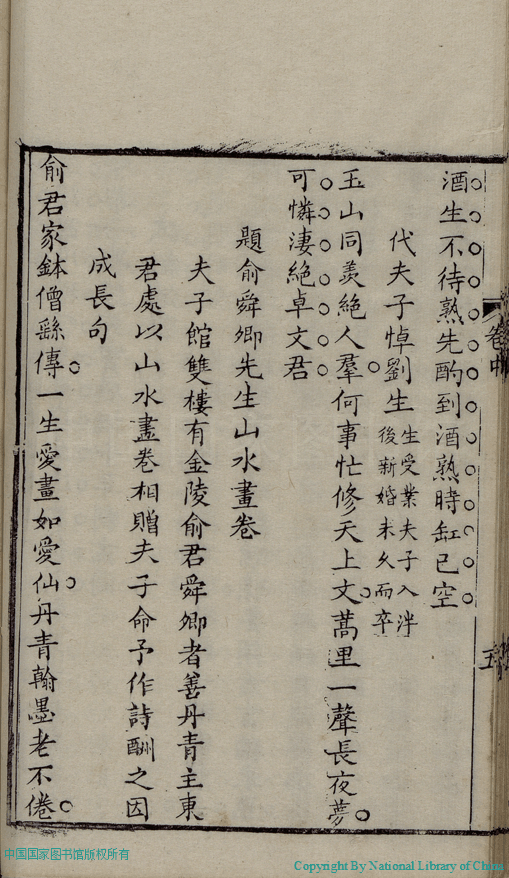 卷中
五
酒生不待熟先酌到酒熟時缸已空
代夫子悼劉生生受業夫子入泮
後新婚未久而卒
玉山同羨絶人羣何事忙修天上文蒿里一聲長夜夢
可憐淒絶卓文君
題俞舜卿先生山水畫卷
夫子館雙樓有金陵俞君舜卿者善丹青主東
君處以山水畫卷相贈夫子命予作詩酬之因
成長句
俞君家鉢僧繇傳一生愛畫如愛仙丹青翰墨老不倦
中国国家图书馆版权所有
Copyright By National Library of China